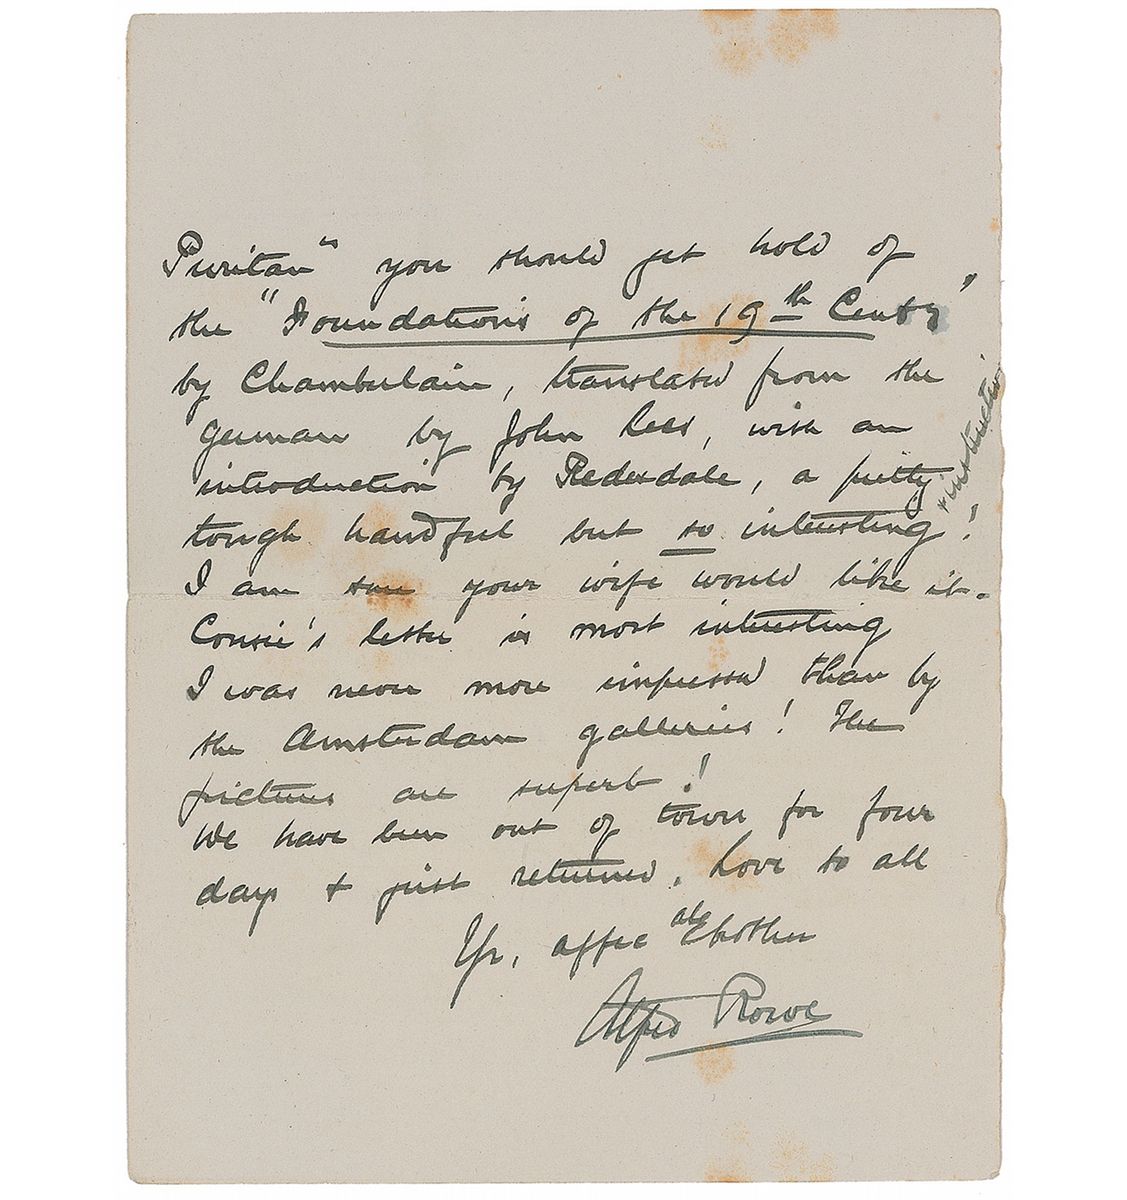 Puritan" you should get hold of
the "Foundations of the 19th Centy"
by Chamberlain, translated from the
German by John Lees, with an
introduction by Redesdale, a pretty
tough handful but so interesting + instructive!
I am sure your wife would like it.
Consie's letter is most interesting
I was never more impressed than by
the Amsterdam galleries! The
pictures are superb!
We have been out of town for four
days + just returned. Love to all
Yr. affec ate brother
Alfred Rowe